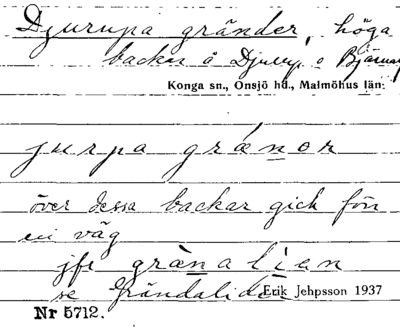 Djurupa gränder, höga
backar å Djurup o Bjärnarp
Konga sn., Onsjö hd., Malmöhus län.
jurpa gränor
över dessa backar gick förr
en väg
jfr grànalìen
se Grändaliden
Erik Jehpsson 1937
Nr 5712.